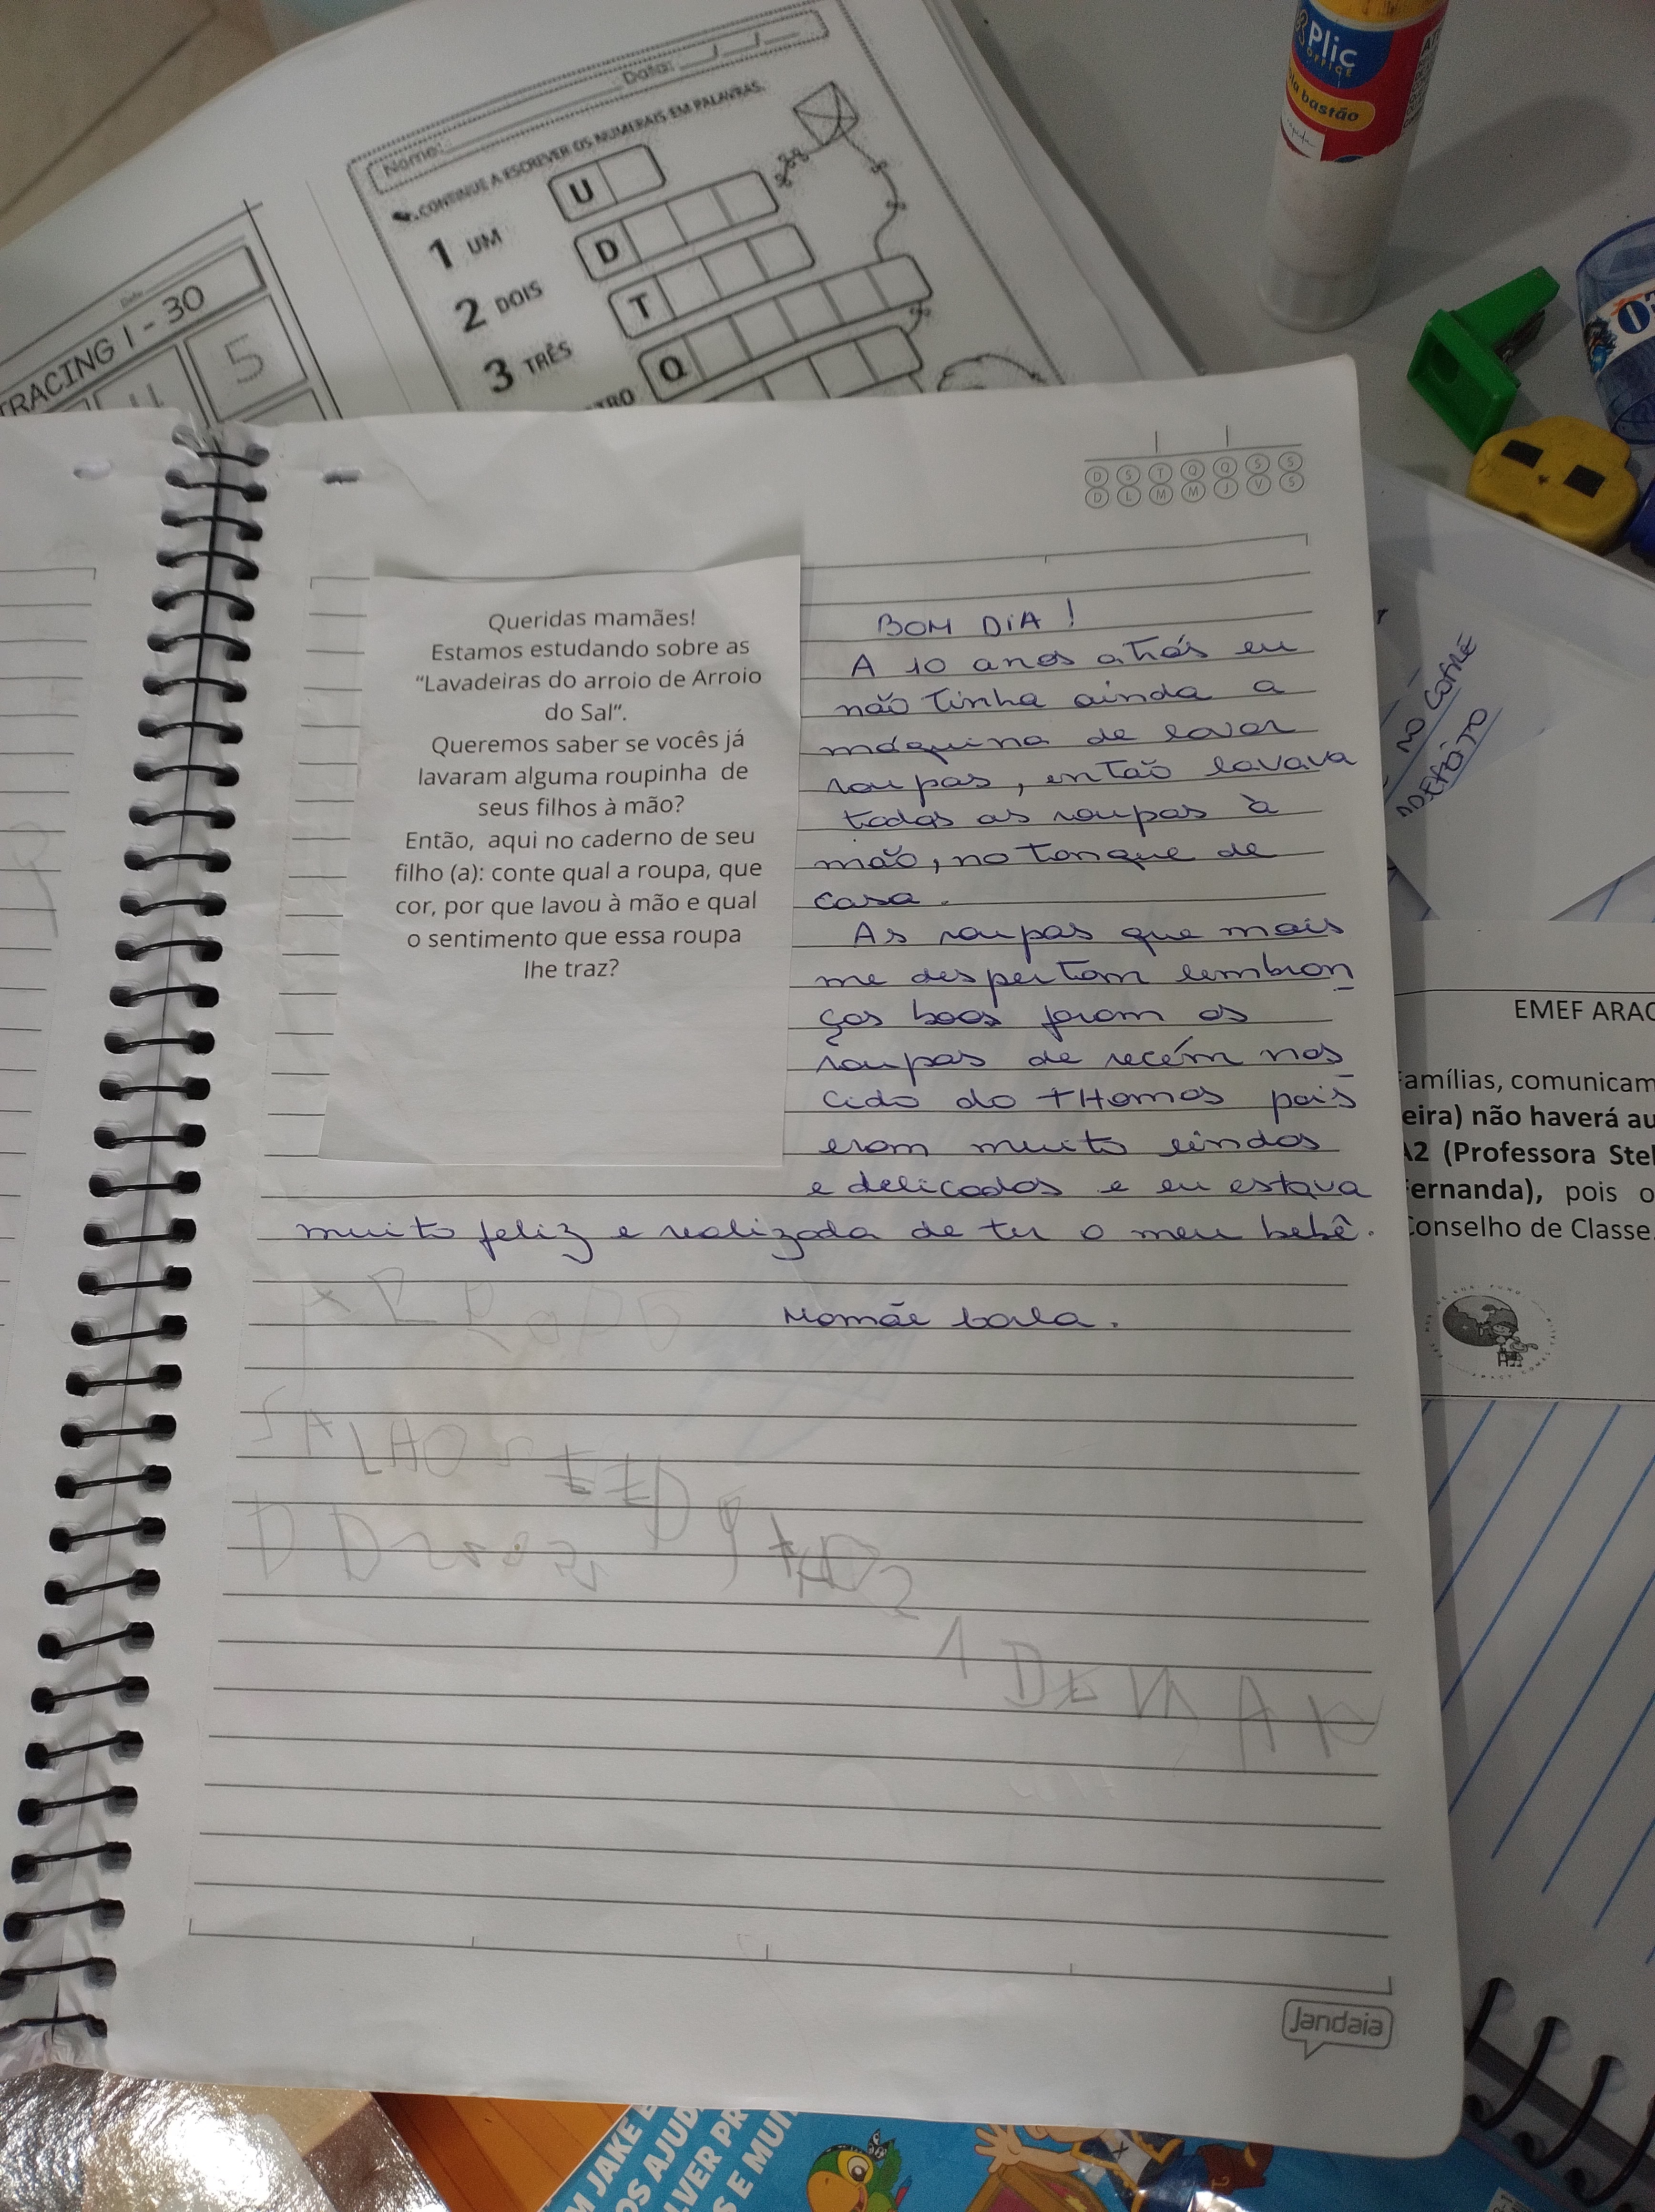 Data:
Nome:
CONTINUE A ESCREVER OS NUMERAIS EM PALAVRAS.
1 UM
U
2 DOIS
D
3 TRÊS
T
TRO
Q
TRACING 1 - 30
4 5
Plic
OFFICE
la bastão
D S T Q Q S S
D L M M J V S
Queridas mamães!
Estamos estudando sobre as
“Lavadeiras do arroio de Arroio
do Sal”.
Queremos saber se vocês já
lavaram alguma roupinha de
seus filhos à mão?
Então, aqui no caderno de seu
filho (a): conte qual a roupa, que
cor, por que lavou à mão e qual
o sentimento que essa roupa
lhe traz?
BOM DIA!
A 10 anos atrás eu
não tinha ainda a
máquina de lavar
roupas, então lavava
todas as roupas à
mão, no tanque de
casa.
As roupas que mais
me despertam lembran
ças boas foram as
roupas de recém nas
cido do THomas pois
eram muito lindas
e delicadas e eu estava
muito feliz e realizada de ter o meu bebê.
Mamãe
NO
EMEF ARAC
Famílias, comunicam
eira) não haverá au
A2 (Professora Stel
Fernanda), pois o
Conselho de Classe.
Jandaia
M JAKE E
OS AJUD
LVER PR
S E MUI